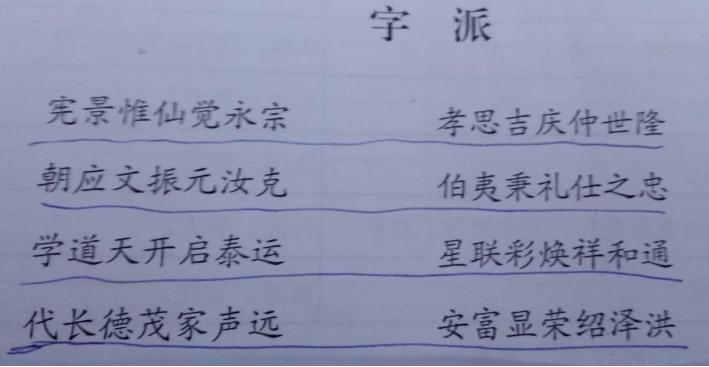 字 派
宪景惟仙觉永宗 孝思吉庆仲世隆
朝应文振元汝克 伯夷秉礼仕之忠
学道天开启泰运 星联彩焕祥和通
代长德茂家声远 安富显荣绍泽洪